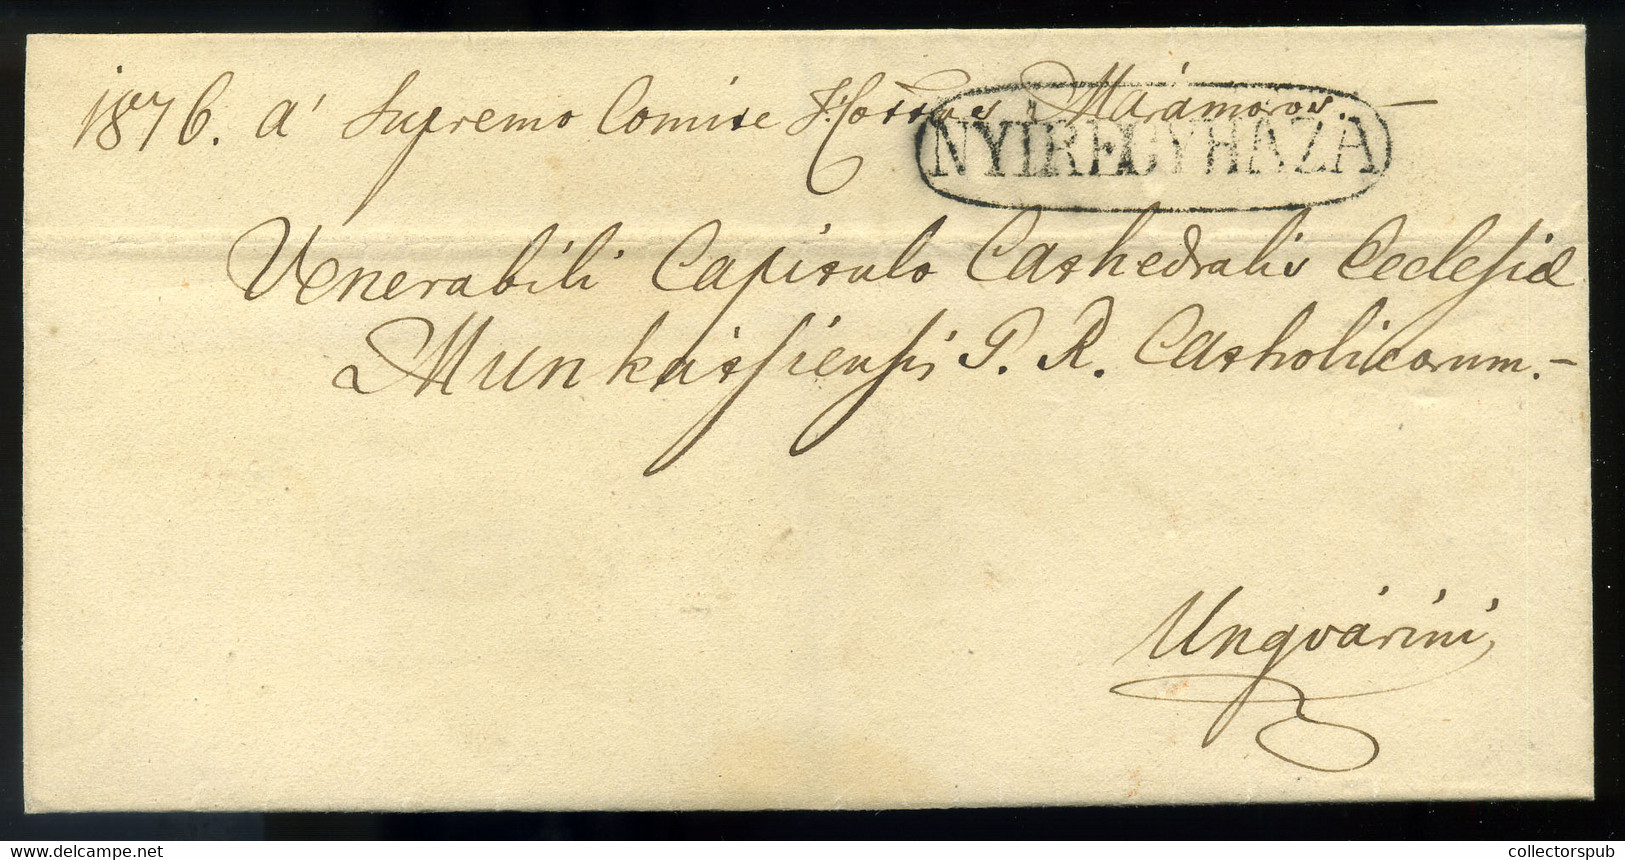 1876. a' Supremo Comite Cottus Máramoros. —
NYÍREGYHÁZA
Venerabili Capitulo Cathedralis Ecclesiæ
Munkátsiensis G. R. Catholicorum. –
Ungvárini
collectorspub